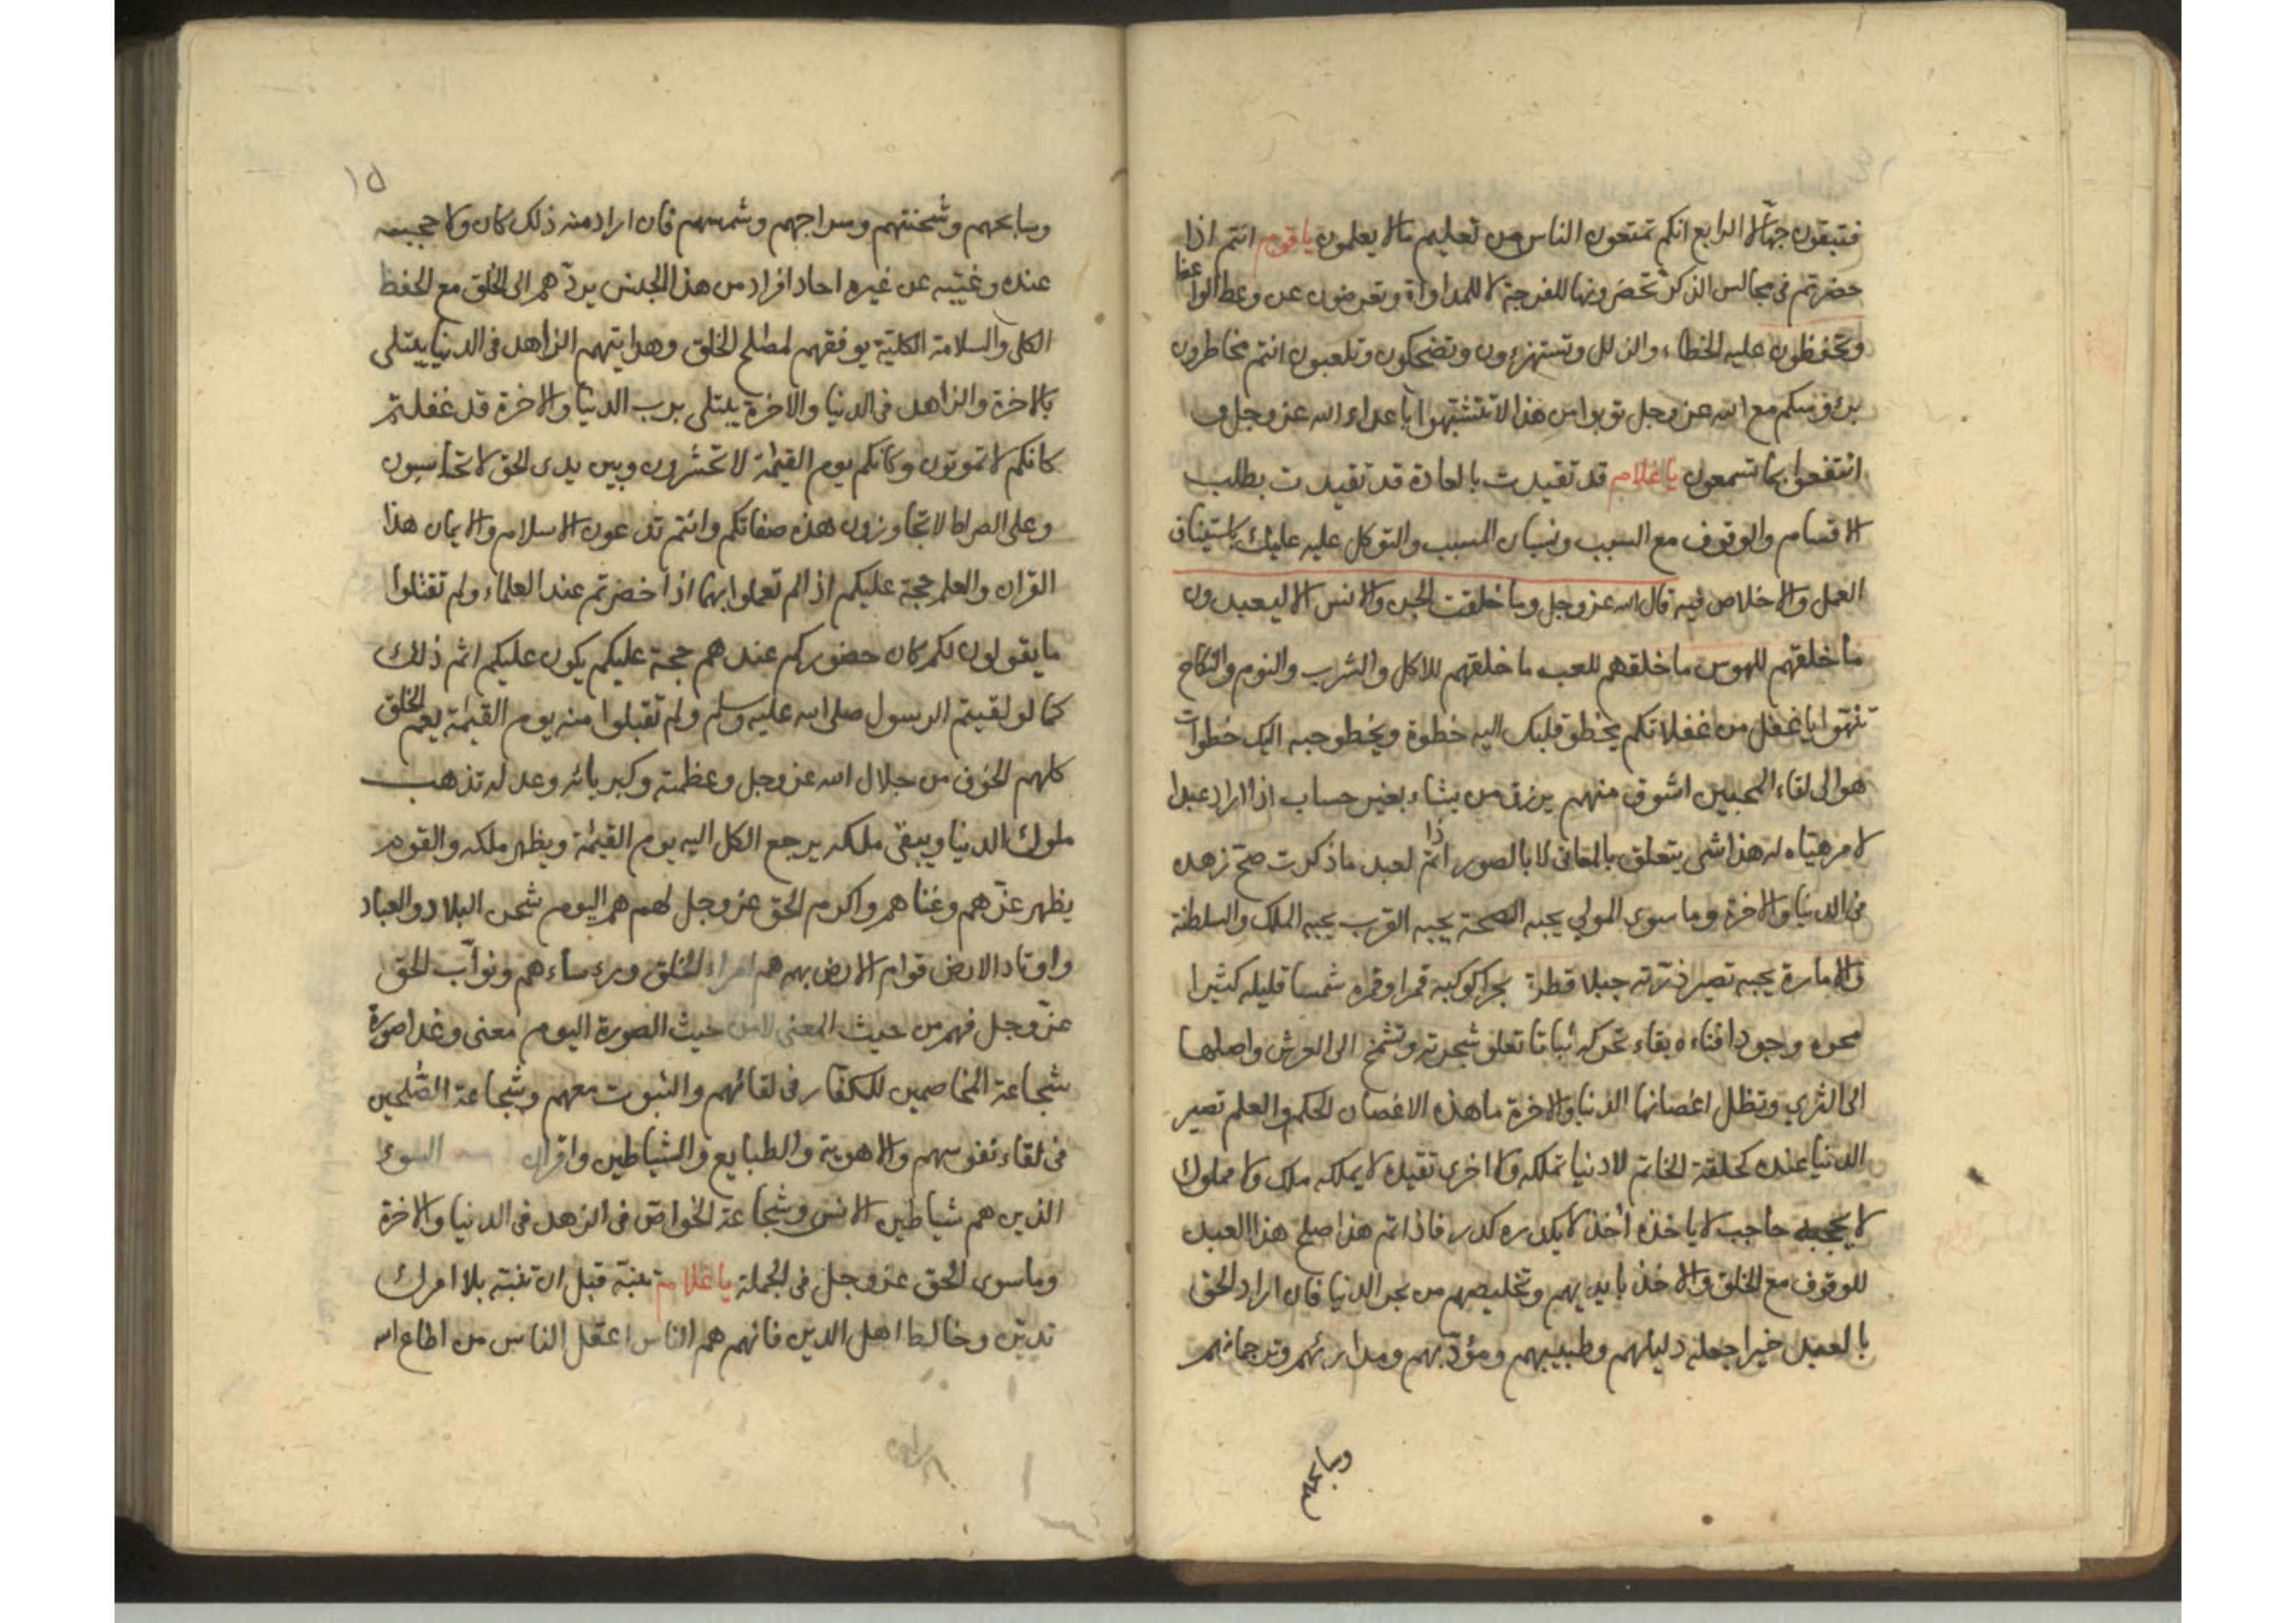 فتبقون جهالا الرابع انكم تمنعون الناس من تعليم مالا يعلمون ياقوم انتم اذا
حضرتم فى مجالس الذكر تحضرونها للفرجة لا للمداواة وتعرضون عن وعظ الواعظ
وتحفظون عليه الخطاء والزلل وتستهزءون وتضحكون وتلعبون انتم مخاطرون
برؤسكم مع الله عزوجل توبوا من هذا لا تتشبهوا باعداء الله عزوجل و
انتفعوا بما تسمعون ياغلام قد تقيدت بالعادة قد تقيدت بطلب
الاقسام والوقوف مع السبب ونسيان المسبب والتوكل عليه عليك باستيناف
العمل والاخلاص فيه قال الله عزوجل وما خلقت الجن والانس الا ليعبدون
ما خلقهم للهوس ما خلقهم للعب ما خلقهم للاكل والشرب والنوم والنكاح
تنبهوا يا غفل من غفلاتكم يخطو قلبك اليه خطوة ويخطو حبه اليك خطوات
هو الى لقاء المحبين اشوق منهم يرزق من يشاء بغير حساب اذا اراد عبدا
لامر هيأه له هذا شى يتعلق بالمعانى لا بالصور اذا تم لعبد ماذكرت صح زهده
فى الدنيا والاخرة وما سوى المولى يجيه الصحة يجيه القرب يجيه الملك والسلطنة
والامارة يجيه تصير ذرته جبلا قطرته بحرا كوكبه قمرا وقمره شمسا قليله كثيرا
محوه وجودا فناءه بقاء تحركه ثباتا تعلو شجرته وتشمخ الى العرش واصلها
الى الثرى وتظلل اغصانها الدنيا والاخرة ما هذه الاغصان الحكم والعلم تصير
الدنيا عنده كحلقة الخاتم لا دنيا تملكه ولا اخرى تقيده لا يملكه ملك ولا مملوك
لا يحجبه حاجب لا ياخذه أخذ لا يكدره كدر فاذا تم هذا صلح هذا العبد
للوقوف مع الخلق والاخذ بايديهم وتخليصهم من بحر الدنيا فان اراد الحق
بالعبد خيرا جعله دليلهم وطبيبهم ومؤدبهم ومدار بهم وترجمانهم
وسابحهم
١٥
وسابحهم وشحنتهم وسراجهم وشمسهم فان اراد منه ذلك كان والا حجبه
عنده وغيبه عن غيره احاد افراد من هذا الجنس يردهم الى الخلق مع الحفظ
الكلى والسلامة الكلية يوفقهم لمصالح الخلق وهدايتهم الزاهد فى الدنيا يبتلى
بالاخرة والزاهد فى الدنيا والاخرة يبتلى برب الدنيا والاخرة قد غفلتم
كانكم لا تموتون وكانكم يوم القيمة لا تحشرون وبين يدى الحق لا تحاسبون
وعلى الصراط لا تجاوزون هذه صفاتكم وانتم تدعون الاسلام والايمان هذا
القران والعلم حجة عليكم اذ الم تعملوا بهما اذا حضرتم عند العلماء ولم تقبلوا
ما يقولون لكم كان حضوركم عندهم حجة عليكم يكون عليكم اثم ذلك
كما لو لقيتم الرسول صلى الله عليه وسلم ولم تقبلوا منه يوم القيمة يعم الخلق
كلهم الخوف من جلال الله عزوجل وعظمته وكبريائه وعدله تذهب
ملوك الدنيا ويبقى ملكه يرجع الكل اليه يوم القيمة ويظهر ملكه والقوم
يظهر عزهم وغناهم واكرم الحق عزوجل لهم هم اليوم شحن البلاد والعباد
واوتاد الارض قوام الارض بهم هم امراء الخلق ورءساءهم ونواب الحق
عزوجل فهم من حيث المعنى لا من حيث الصورة اليوم معنى وغدا صورة
شجاعة المخاصمين للكفار فى لقائهم والثبوت معهم وشجاعة الصلحين
فى لقاء نفوسهم والاهوية والطبايع والشياطين واقران السوء
الذين هم شياطين الانس وشجاعة الخواص فى الزهد فى الدنيا والاخرة
وما سوى الحق عزوجل فى الجملة ياغلام تنبه قبل ان تنبه بلا امرك
تدين وخالط اهل الدين فانهم هم الناس اعقل الناس من اطاع الله